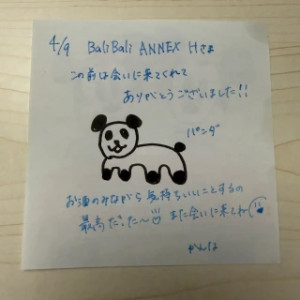 4/9 BaliBali ANNEX Hさま
この前は会いに来てくれて
ありがとうございました!!
パンダ
お酒のみながら気持ちいいことするの
最高だった〜 また会いに来てね
かんな